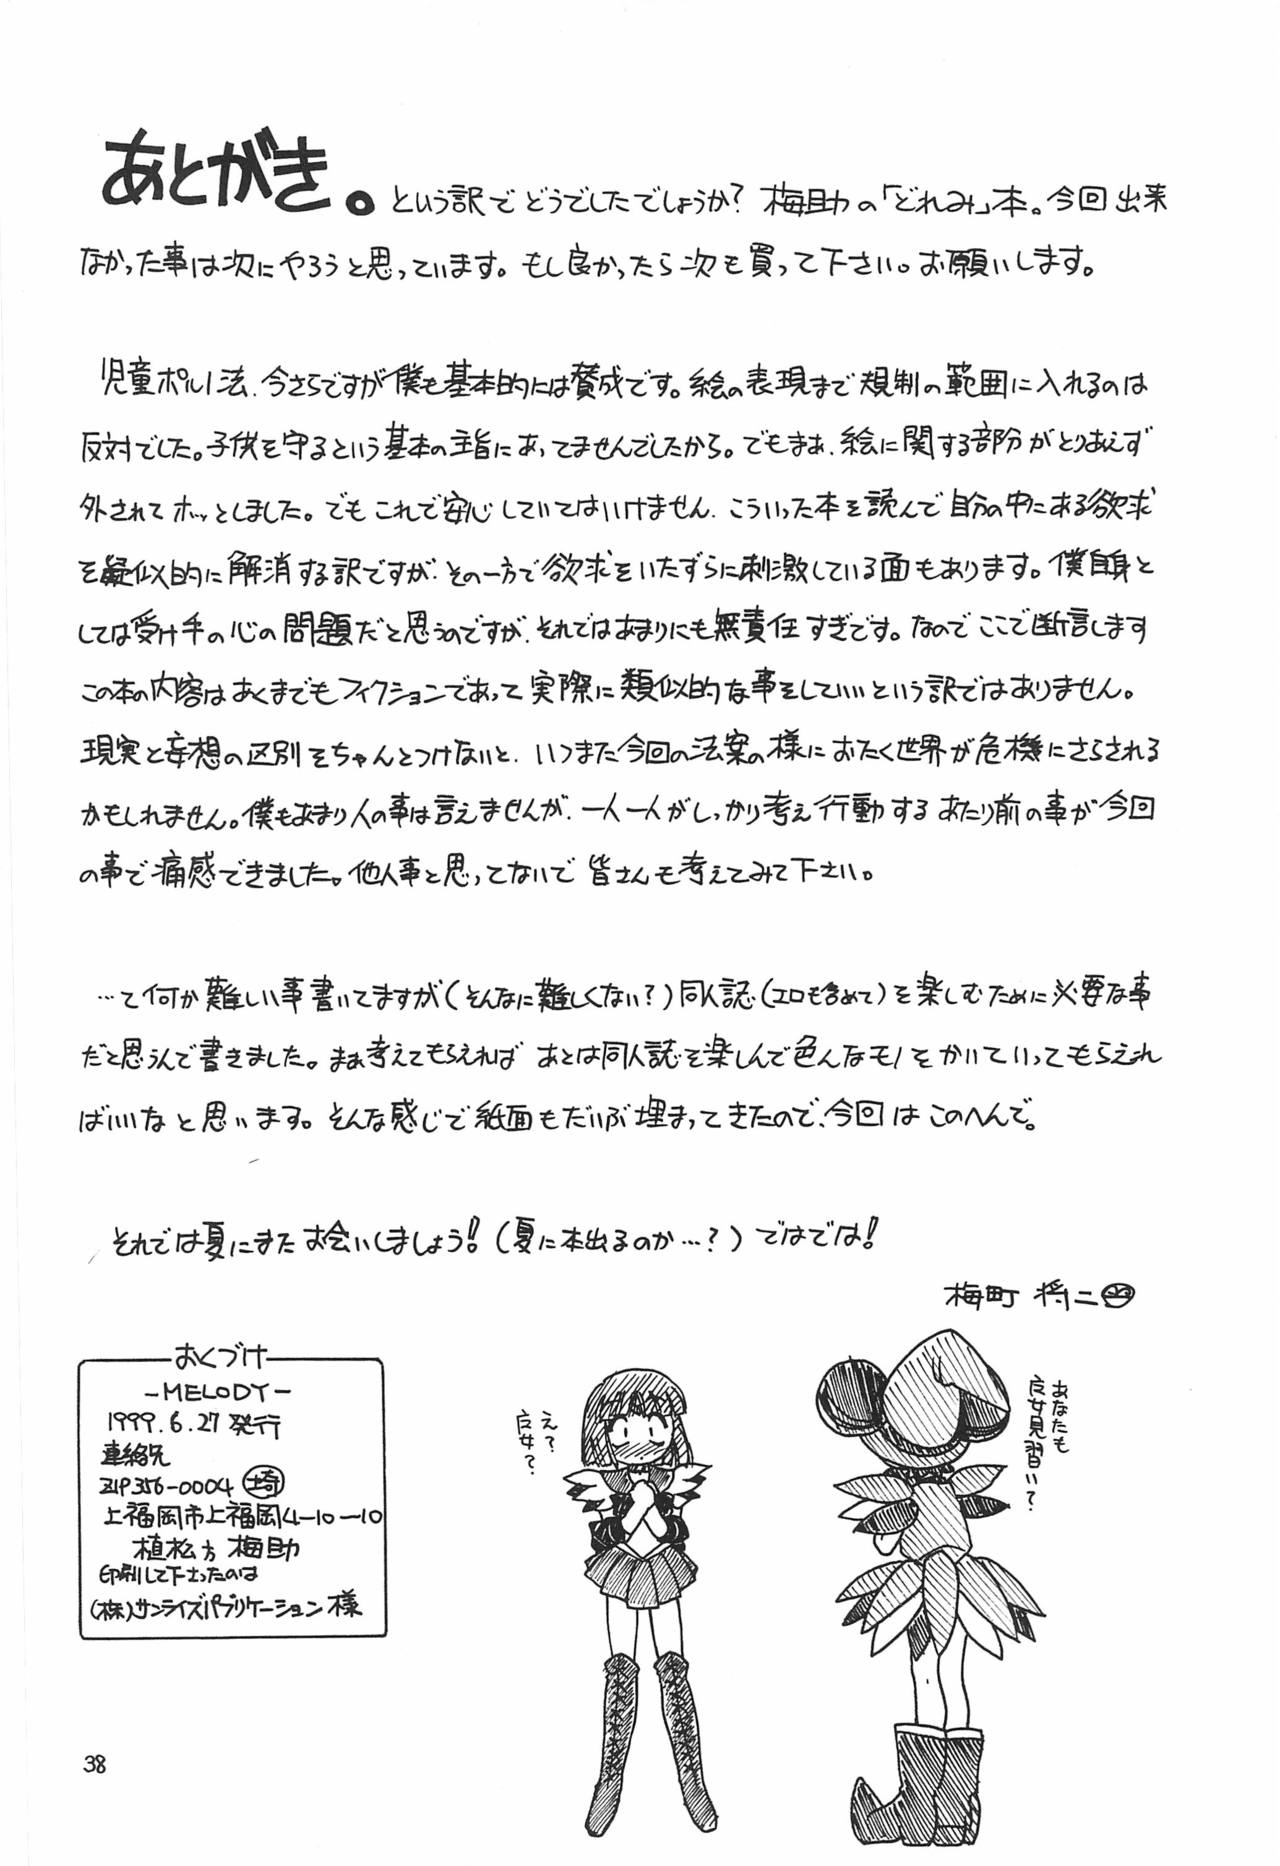 あとがき。という訳でどうでしたでしょうか？梅助の「どれみ」本。今回出来
なかった事は次にやろうと思っています。もし良かったら次も買って下さい。お願いします。
児童ポルノ法、今さらですが僕も基本的には賛成です。絵の表現まで規制の範囲に入れるのは
反対でした。子供を守るという基本の主旨にあってませんでしたから。でもまぁ、絵に関する部分がとりあえず
外されてホッとしました。でもこれで安心していてはいけません、こういった本を読んで自分の中にある欲求
を疑似的に解消する訳ですが、その一方で欲求をいたずらに刺激している面もあります。僕自身と
しては受け手の心の問題だと思うのですが、それではあまりにも無責任すぎです。なのでここで断言します
この本の内容はあくまでもフィクションであって実際に類似的な事をしていいという訳ではありません。
現実と妄想の区別をちゃんとつけないと、いつまた今回の法案の様におたく世界が危機にさらされる
かもしれません。僕もあまり人の事は言えませんが、一人一人がしっかり考え行動するあたり前の事が今回
の事で痛感できました。他人事と思ってないで皆さんも考えてみて下さい。
…て何か難しい事書いてますが（そんなに難しくない？）同人誌（エロも含めて）を楽しむために必要な事
だと思うんで書きました。まぁ考えてもらえればあとは同人誌を楽しんで色んなモノをかいていってもらえれ
ばいいなと思います。そんな感じで紙面もだいぶ埋まってきたので、今回はこのへんで。
それでは夏にまたお会いしましょう！（夏に本出るのか…？）ではでは！
梅町 将二
おくづけ
-MELODY-
1999.6.27発行
連絡先
ZIP356-0004 埼
上福岡市上福岡4-10-10
植松方 梅助
印刷して下さったのは
(株)サンライズパブリケーション様
え？
魔女？
あなたも
魔女見習い？
38